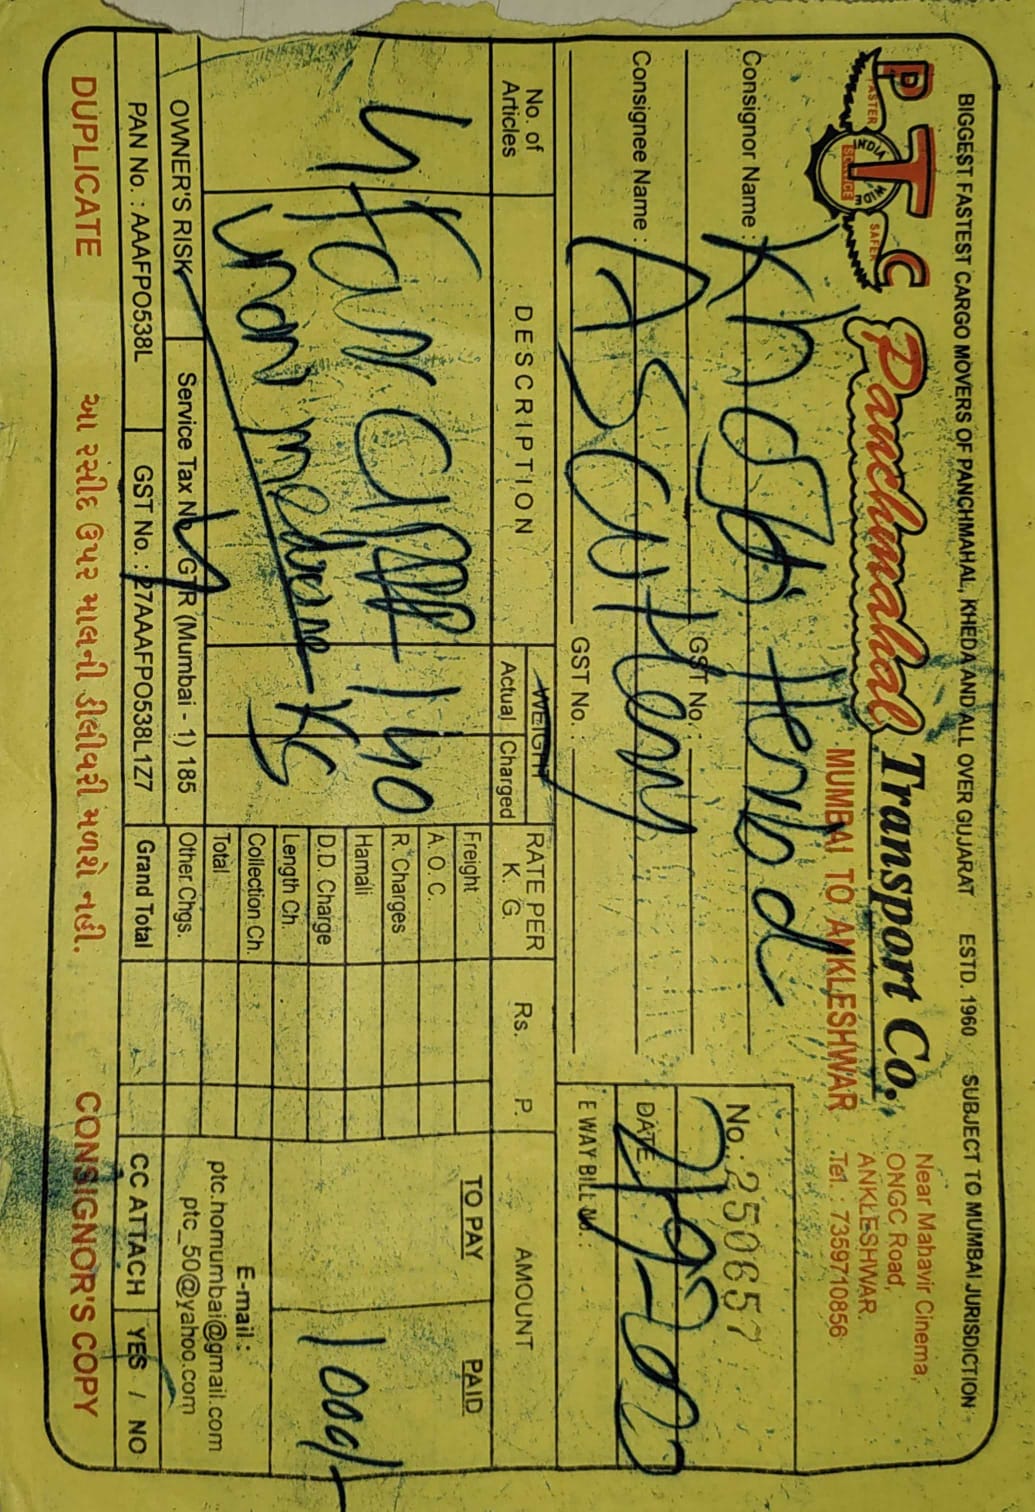 BIGGEST FASTEST CARGO MOVERS OF PANCHMAHAL, KHEDA AND ALL OVER GUJARAT ESTD. 1960 SUBJECT TO MUMBAI JURISDICTION
PTC
FASTER SAFER
INDIA WIDE
SERVICE
Panchmahal Transport Co.
MUMBAI TO ANKLESHWAR
Near Mahavir Cinema,
ONGC Road,
ANKLESHWAR.
Tel. : 7359710856
Consignor Name :
GST No. :
Consignee Name :
GST No. :
No. : 250657
DATE :
E WAY BILL No. :
No. of Articles
DESCRIPTION
WEIGHT
Actual Charged
RATE PER K. G.
Rs. P.
AMOUNT
TO PAY PAID
4
140
KG
100/-
Freight
A. O. C.
R. Charges
Hamali
D.D. Charge
Length Ch.
Collection Ch.
Total
Other Chgs.
Grand Total
E-mail :
ptc.homumbai@gmail.com
ptc_50@yahoo.com
OWNER'S RISK Service Tax No. GTR (Mumbai - 1) 185
PAN No. : AAAFPO538L GST No. : 27AAAFPO538L1Z7
CC ATTACH YES / NO
DUPLICATE આ રસીદ ઉપર માલની ડીલીવરી મળશે નહી. CONSIGNOR'S COPY